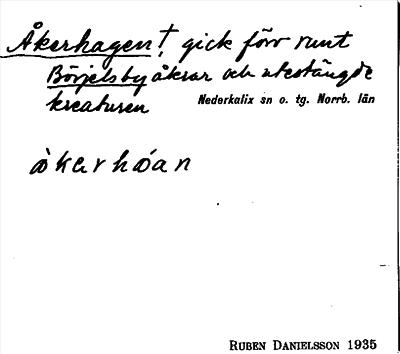 Åkerhagen†, gick förr runt
Börjelsby åkrar och utestängde
kreaturen
Nederkalix sn o. tg. Norrb. län
åkerhåan
RUBEN DANIELSSON 1935